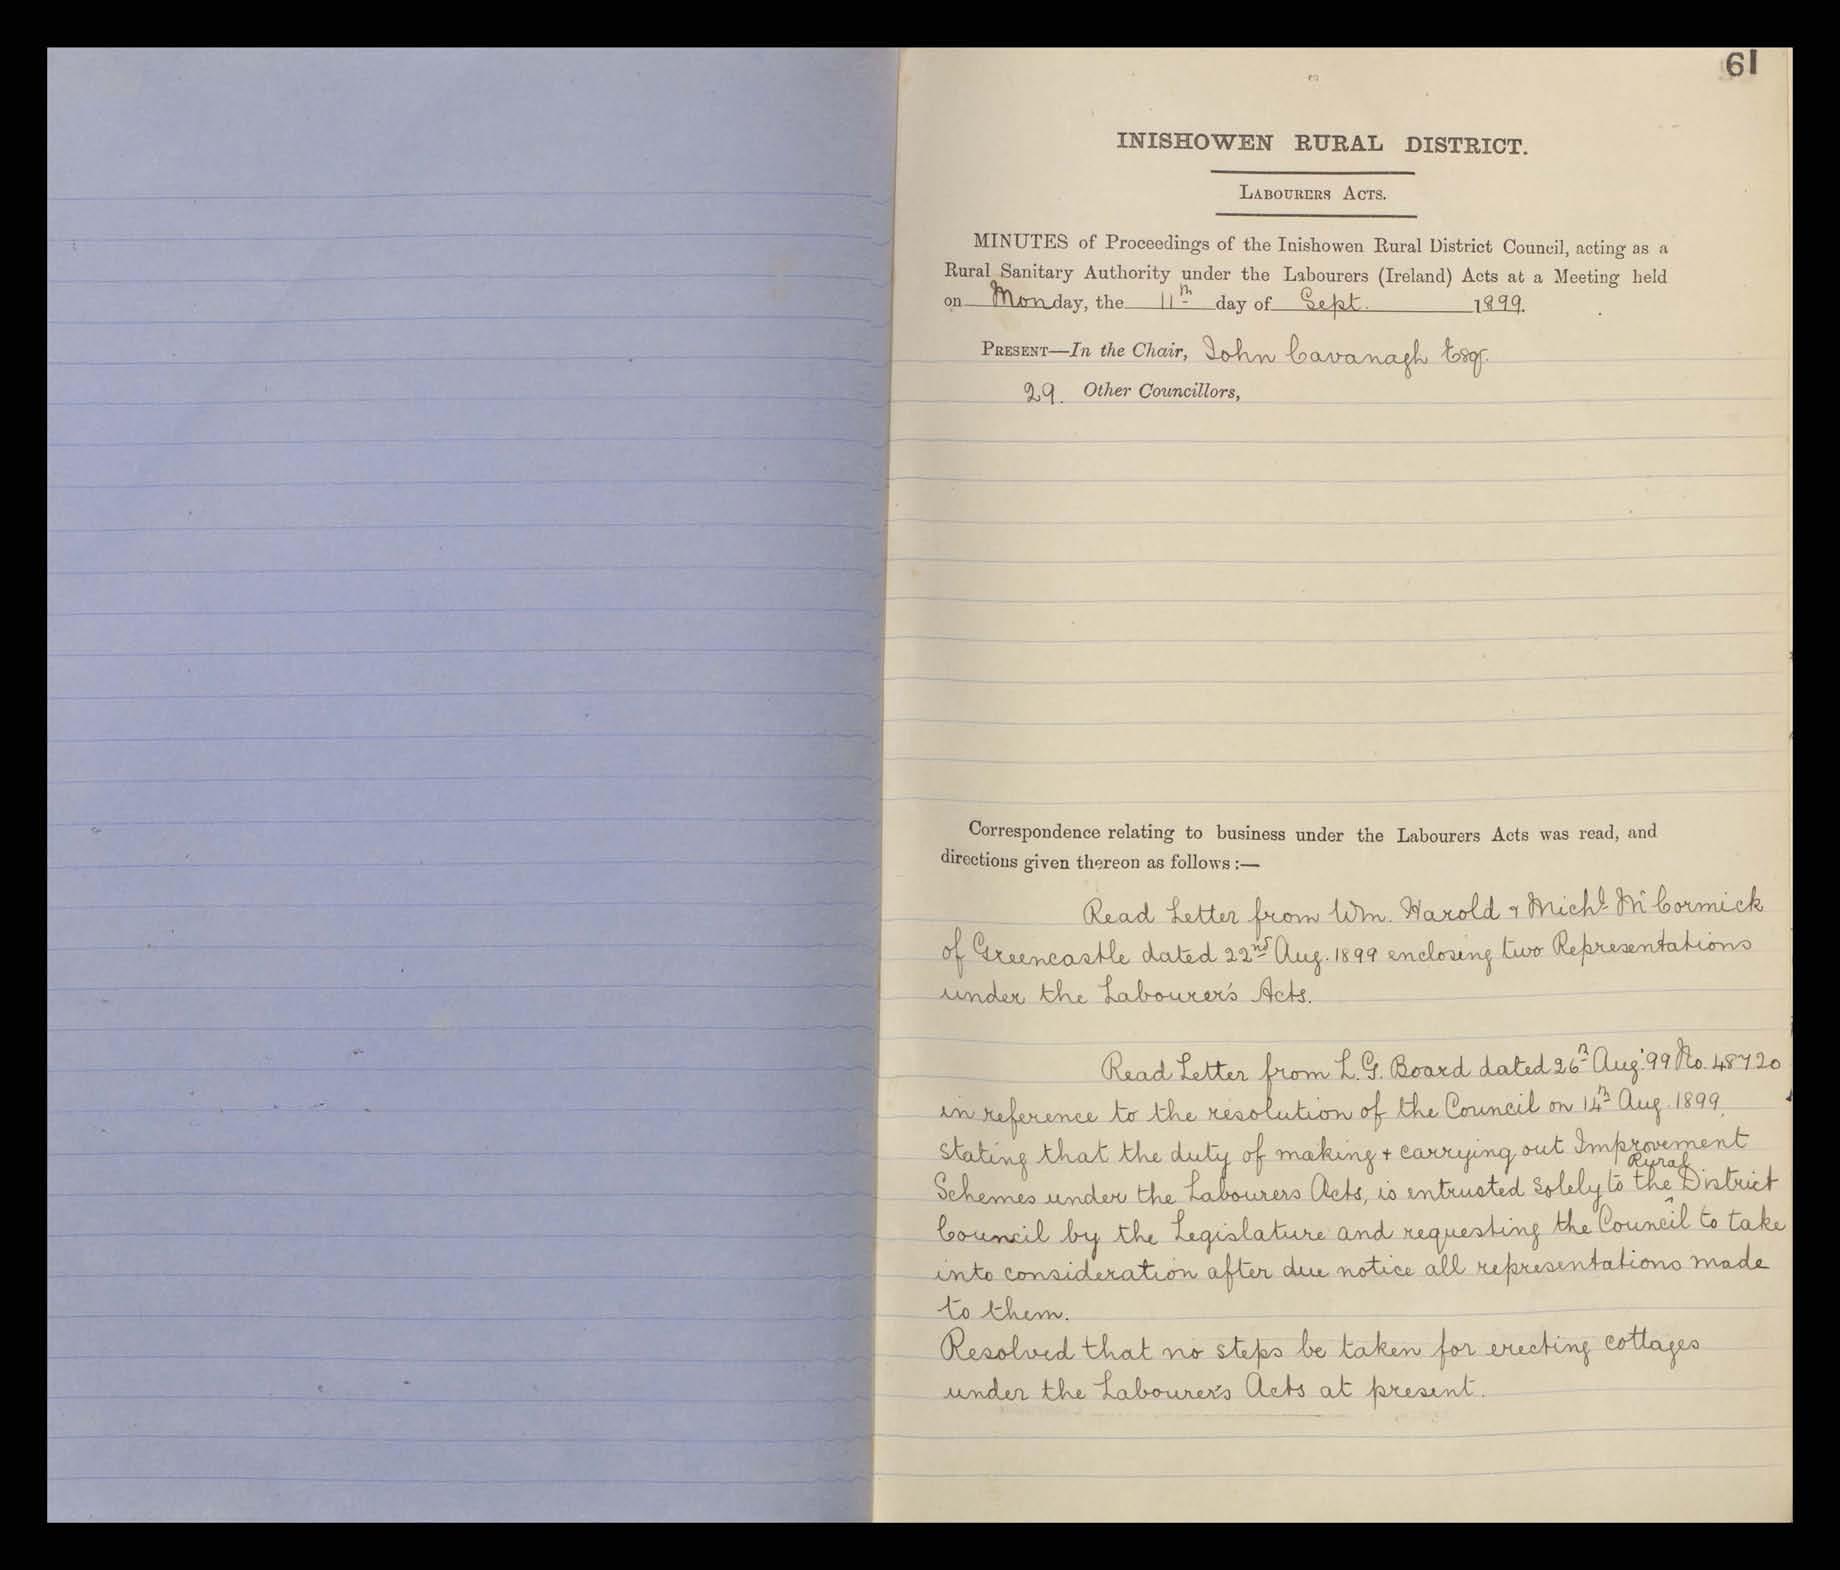 61
INISHOWEN RURAL DISTRICT.
LABOURERS ACTS.
MINUTES of Proceedings of the Inishowen Rural District Council, acting as a
Rural Sanitary Authority under the Labourers (Ireland) Acts at a Meeting held
on Monday, the 11th day of Sept. 1899.
PRESENT—In the Chair, John Cavanagh Esqr.
29. Other Councillors,
Correspondence relating to business under the Labourers Acts was read, and
directions given thereon as follows:—
Read Letter from Wm. Harold & Michl. McCormick
of Greencastle dated 22nd Aug. 1899 enclosing two Representations
under the Labourer's Acts.
Read Letter from L. G. Board dated 26th Aug. '99 No. 48720
in reference to the resolution of the Council on 14th Aug. 1899
stating that the duty of making + carrying out Improvement
Schemes under the Labourers Acts, is entrusted solely to the Rural District
Council by the Legislature and requesting the Council to take
into consideration after due notice all representations made
to them.
Resolved that no steps be taken for erecting cottages
under the Labourer's Acts at present.